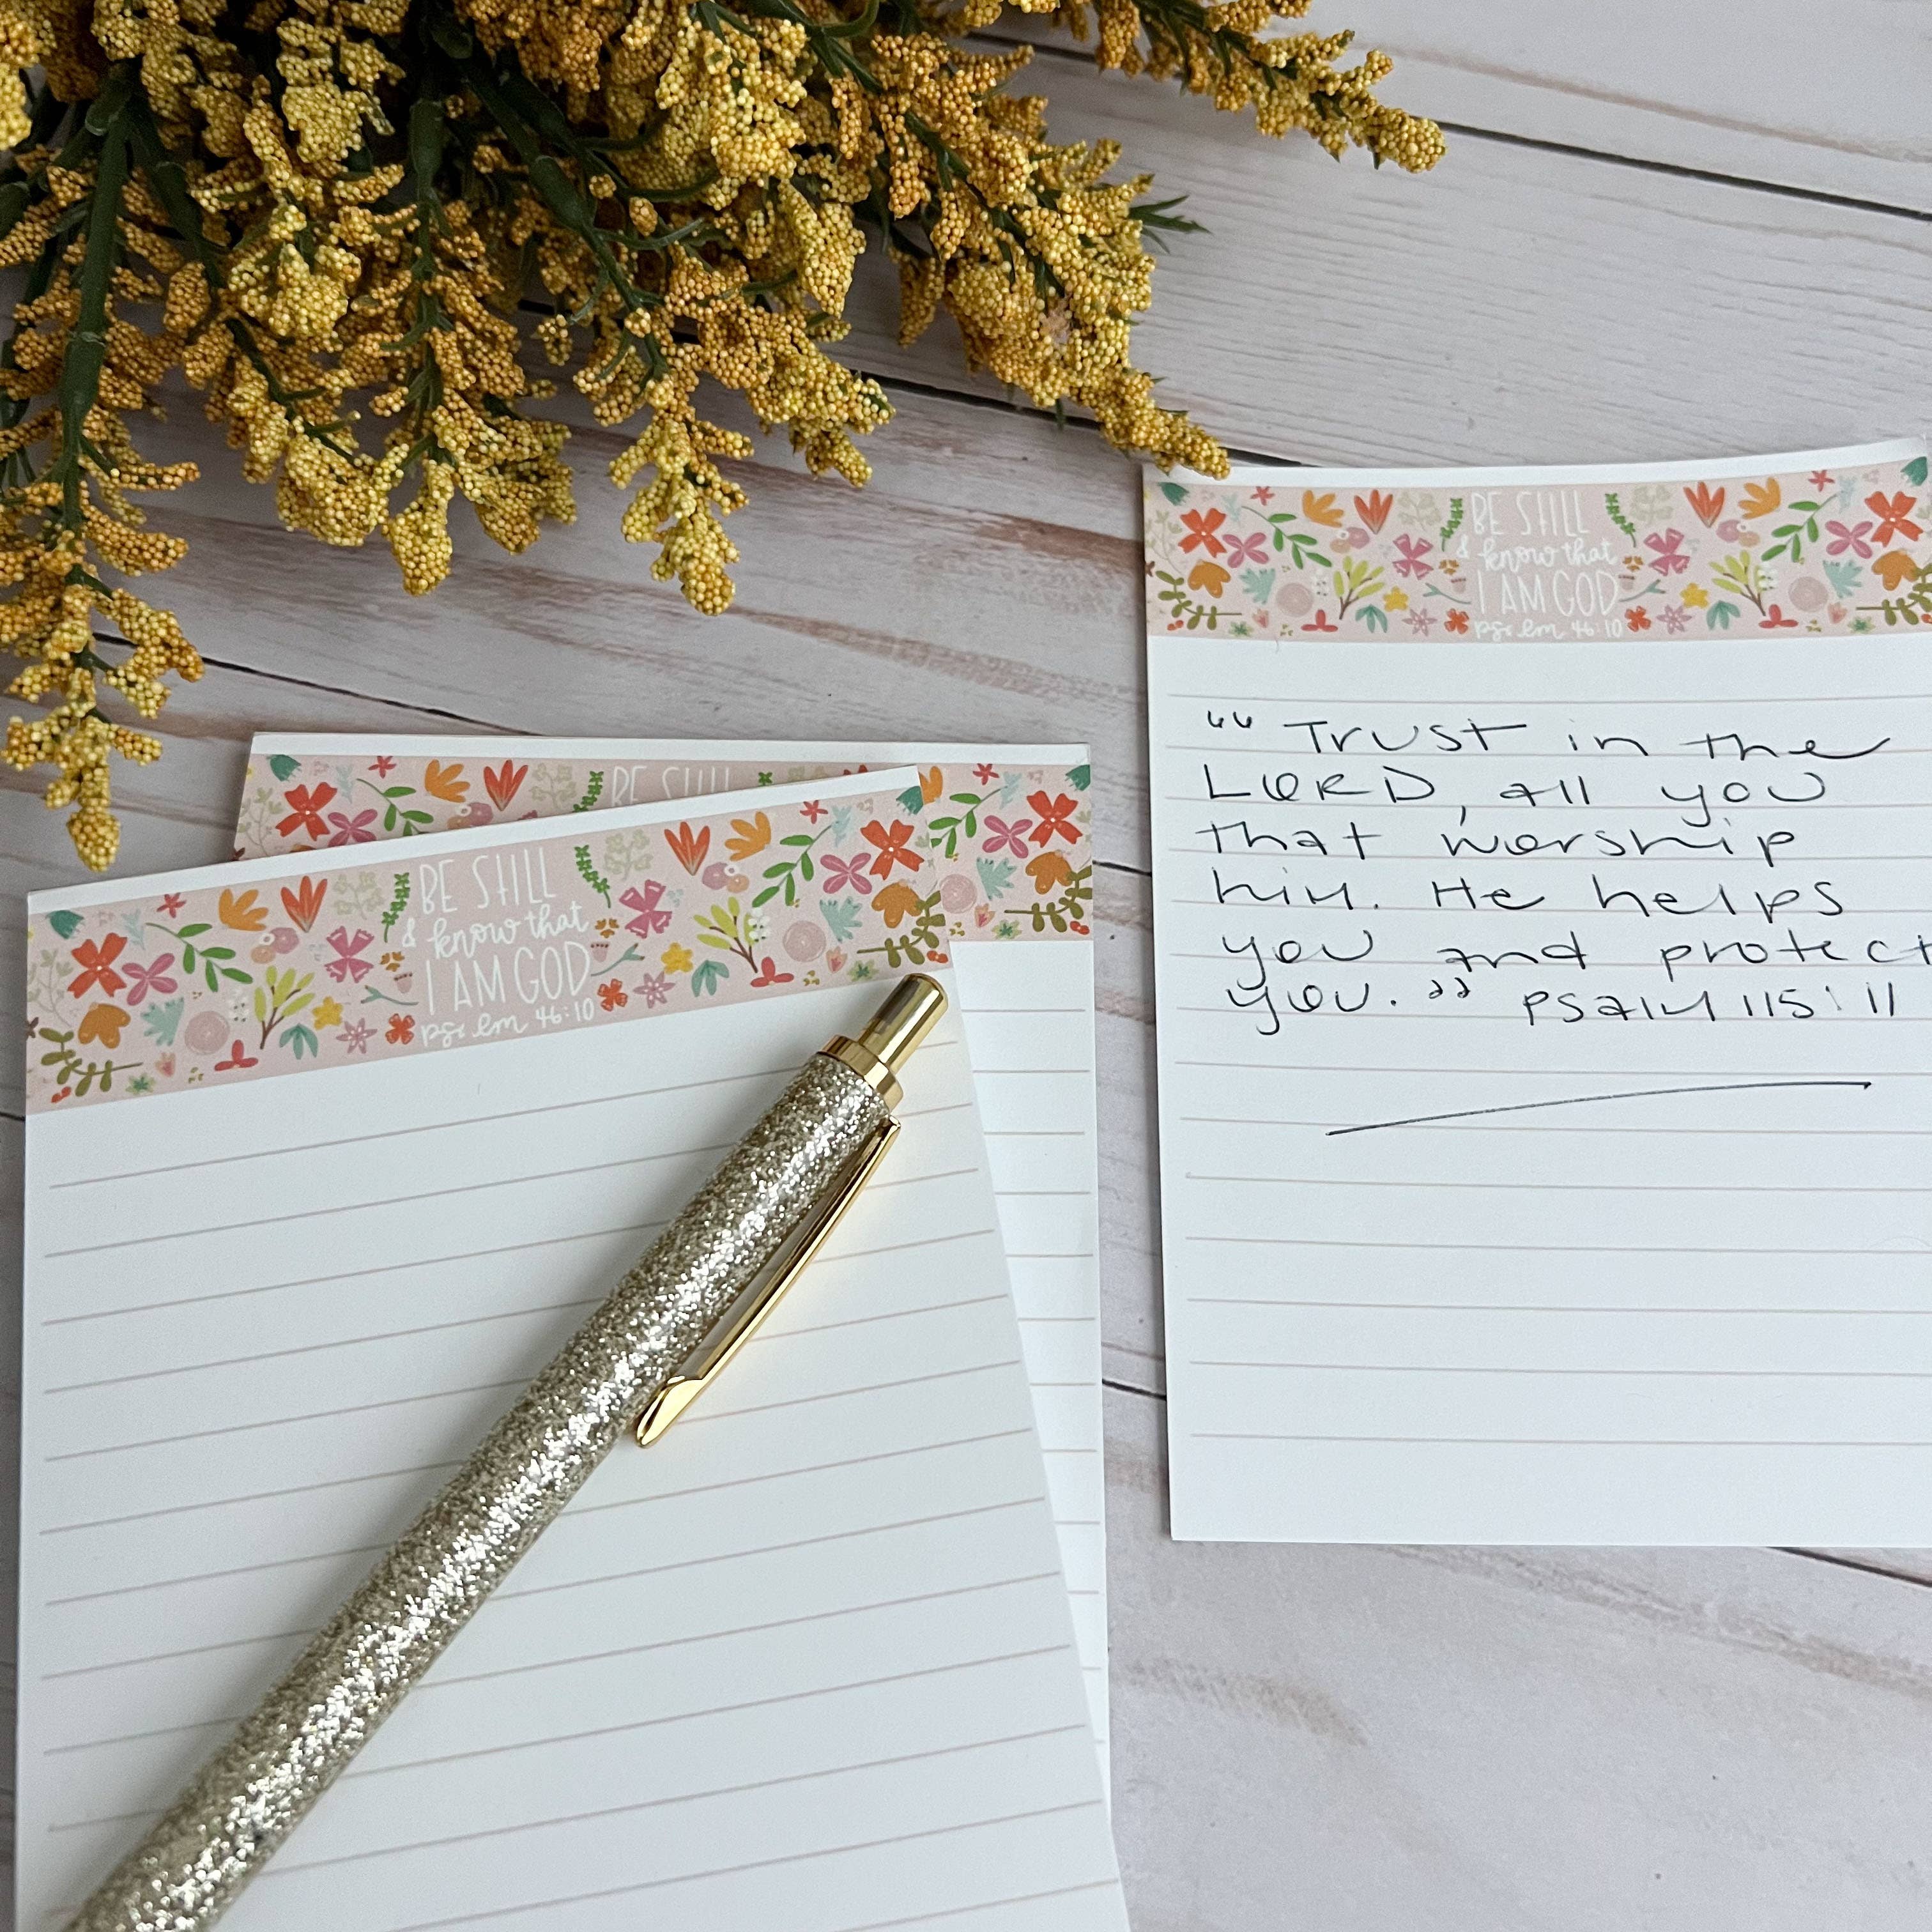 BE STILL
BE STILL
& know that
I AM GOD
psalm 46:10
BE STILL
& know that
I AM GOD
psalm 46:10
“Trust in the
LORD, all you
that worship
him. He helps
you and protect
you.” Psalm 115:11